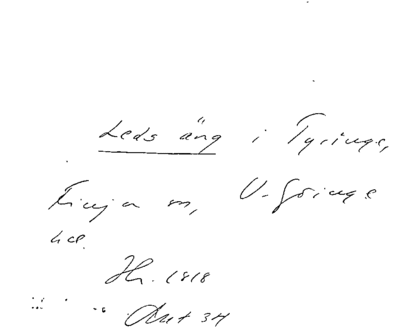 Leds äng i Tyringe,
Finja sn, V-Göinge
hd.
Hr. 1818
Akt 34